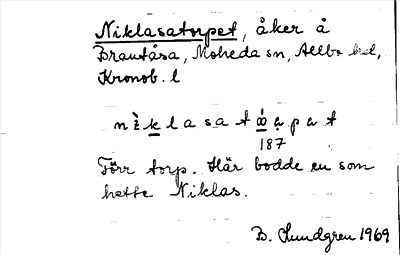 Niklasatorpet, åker å
Brantåsa, Moheda sn, Allbo hd,
Kronob. l
n ì k l a s a t ó̤ ạ p a t
187
Förr torp. Här bodde en som
hette Niklas.
B. Lundgren 1969